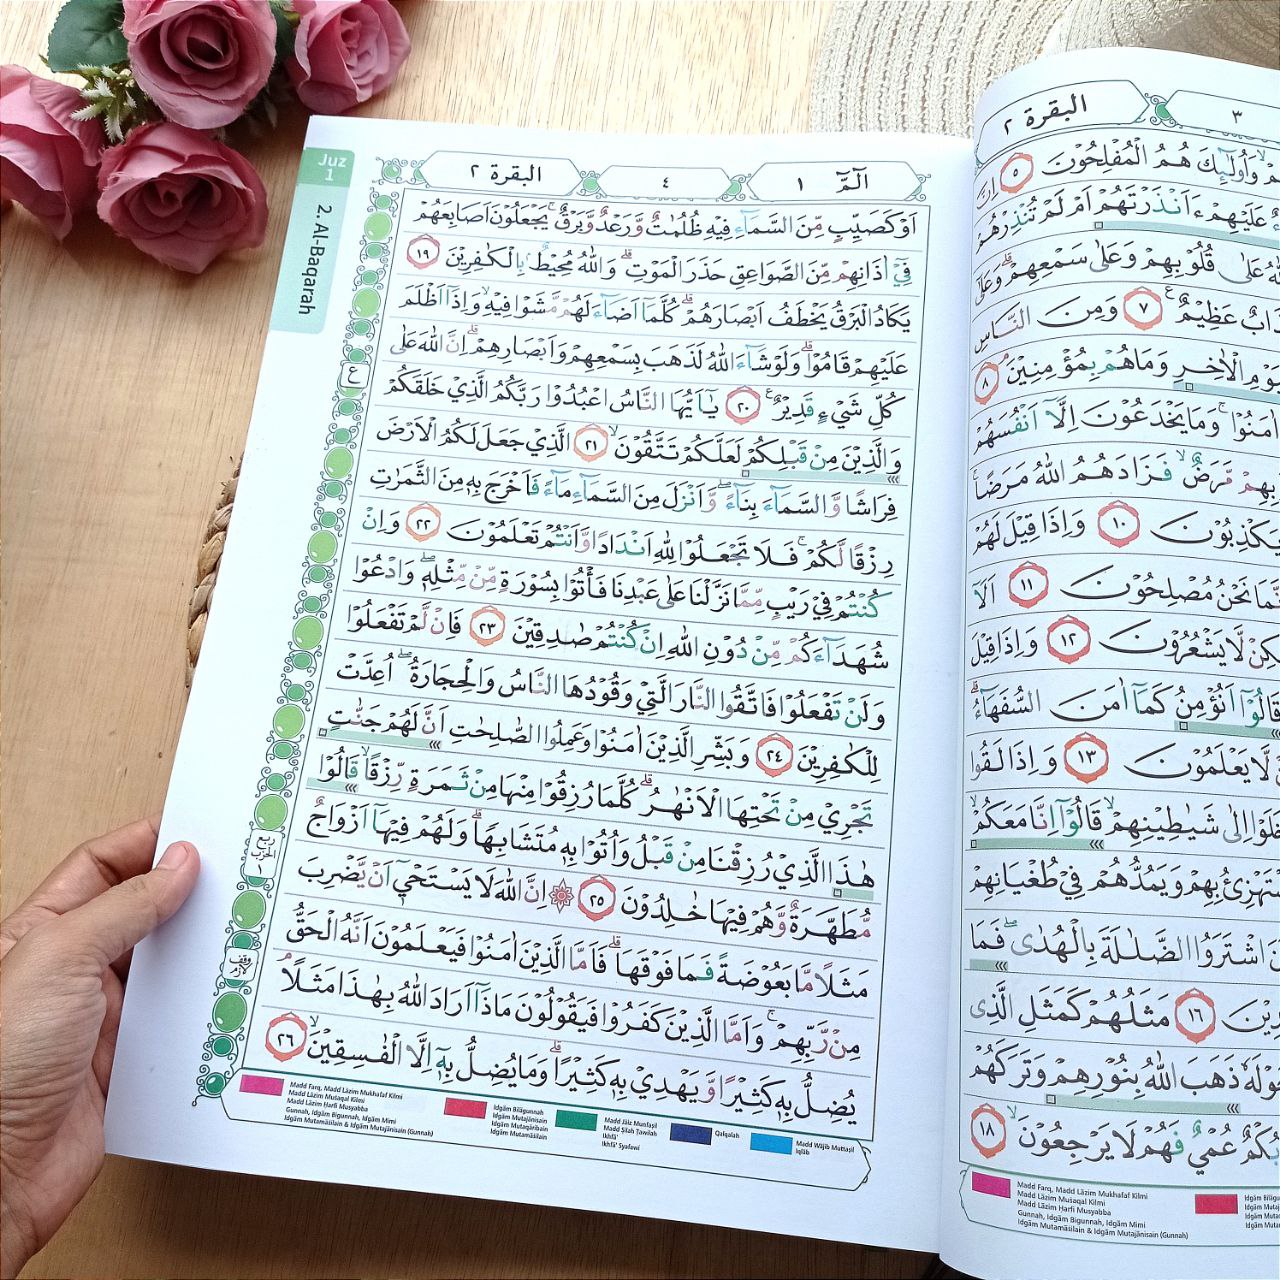 البقرة ٢
٣
وَاُولٰۤىِٕكَ هُمُ الْمُفْلِحُوْنَ ٥ اِنَّ
عَلَيْهِمْ ءَاَنْذَرْتَهُمْ اَمْ لَمْ تُنْذِرْهُمْ
عَلٰى قُلُوْبِهِمْ وَعَلٰى سَمْعِهِمْ ۗ وَعَلٰٓى
عَظِيْمٌ ࣖ ٧ وَمِنَ النَّاسِ
الْاٰخِرِ وَمَا هُمْ بِمُؤْمِنِيْنَ ۘ ٨
اٰمَنُوْا ۚ وَمَا يَخْدَعُوْنَ اِلَّآ اَنْفُسَهُمْ
مَّرَضٌۙ فَزَادَهُمُ اللّٰهُ مَرَضًاۚ
يَكْذِبُوْنَ ١٠ وَاِذَا قِيْلَ لَهُمْ
نَحْنُ مُصْلِحُوْنَ ١١ اَلَآ
لَّا يَشْعُرُوْنَ ١٢ وَاِذَا قِيْلَ
قَالُوْٓا اَنُؤْمِنُ كَمَآ اٰمَنَ السُّفَهَاۤءُ ۗ
لَّا يَعْلَمُوْنَ ١٣ وَاِذَا لَقُوا
اِلٰى شَيٰطِيْنِهِمْۙ قَالُوْٓا اِنَّا مَعَكُمْۙ
بِهِمْ وَيَمُدُّهُمْ فِيْ طُغْيَانِهِمْ
اشْتَرَوُا الضَّلٰلَةَ بِالْهُدٰىۖ فَمَا
١٦ مَثَلُهُمْ كَمَثَلِ الَّذِى
ذَهَبَ اللّٰهُ بِنُوْرِهِمْ وَتَرَكَهُمْ
عُمْيٌ فَهُمْ لَا يَرْجِعُوْنَۙ ١٨
Madd Farq, Madd Lāzim Mukhafaf Kilmi
Madd Lāzim Muṡaqal Kilmi
Madd Lāzim Ḥarfi Musyabba
Gunnah, Idgām Bigunnah, Idgām Mimi
Idgām Mutamāṡilain & Idgām Mutajānisain (Gunnah)
الۤمّۤ ١
٤
البقرة ٢
Juz
1
2. Al-Baqarah
اَوْ كَصَيِّبٍ مِّنَ السَّمَاۤءِ فِيْهِ ظُلُمٰتٌ وَّرَعْدٌ وَّبَرْقٌۚ يَجْعَلُوْنَ اَصَابِعَهُمْ
فِيْٓ اٰذَانِهِمْ مِّنَ الصَّوَاعِقِ حَذَرَ الْمَوْتِۗ وَاللّٰهُ مُحِيْطٌۢ بِالْكٰفِرِيْنَ ١٩
يَكَادُ الْبَرْقُ يَخْطَفُ اَبْصَارَهُمْ ۗ كُلَّمَآ اَضَاۤءَ لَهُمْ مَّشَوْا فِيْهِ ۙ وَاِذَآ اَظْلَمَ
عَلَيْهِمْ قَامُوْا ۗ وَلَوْ شَاۤءَ اللّٰهُ لَذَهَبَ بِسَمْعِهِمْ وَاَبْصَارِهِمْ ۗ اِنَّ اللّٰهَ عَلٰى
كُلِّ شَيْءٍ قَدِيْرٌ ࣖ ٢٠ يٰٓاَيُّهَا النَّاسُ اعْبُدُوْا رَبَّكُمُ الَّذِيْ خَلَقَكُمْ
وَالَّذِيْنَ مِنْ قَبْلِكُمْ لَعَلَّكُمْ تَتَّقُوْنَۙ ٢١ الَّذِيْ جَعَلَ لَكُمُ الْاَرْضَ
فِرَاشًا وَّالسَّمَاۤءَ بِنَاۤءً ۖ وَّاَنْزَلَ مِنَ السَّمَاۤءِ مَاۤءً فَاَخْرَجَ بِهٖ مِنَ الثَّمَرٰتِ
رِزْقًا لَّكُمْ ۚ فَلَا تَجْعَلُوْا لِلّٰهِ اَنْدَادًا وَّاَنْتُمْ تَعْلَمُوْنَ ٢٢ وَاِنْ
كُنْتُمْ فِيْ رَيْبٍ مِّمَّا نَزَّلْنَا عَلٰى عَبْدِنَا فَأْتُوْا بِسُوْرَةٍ مِّنْ مِّثْلِهٖ ۖ وَادْعُوْا
شُهَدَاۤءَكُمْ مِّنْ دُوْنِ اللّٰهِ اِنْ كُنْتُمْ صٰدِقِيْنَ ٢٣ فَاِنْ لَّمْ تَفْعَلُوْا
وَلَنْ تَفْعَلُوْا فَاتَّقُوا النَّارَ الَّتِيْ وَقُوْدُهَا النَّاسُ وَالْحِجَارَةُ ۖ اُعِدَّتْ
لِلْكٰفِرِيْنَ ٢٤ وَبَشِّرِ الَّذِيْنَ اٰمَنُوْا وَعَمِلُوا الصّٰلِحٰتِ اَنَّ لَهُمْ جَنّٰتٍ
تَجْرِيْ مِنْ تَحْتِهَا الْاَنْهٰرُ ۗ كُلَّمَا رُزِقُوْا مِنْهَا مِنْ ثَمَرَةٍ رِّزْقًا ۙ قَالُوْا
هٰذَا الَّذِيْ رُزِقْنَا مِنْ قَبْلُ وَاُتُوْا بِهٖ مُتَشَابِهًا ۗ وَلَهُمْ فِيْهَآ اَزْوَاجٌ
مُّطَهَّرَةٌ وَّهُمْ فِيْهَا خٰلِدُوْنَ ٢٥ ۞ اِنَّ اللّٰهَ لَا يَسْتَحْيٖٓ اَنْ يَّضْرِبَ
مَثَلًا مَّا بَعُوْضَةً فَمَا فَوْقَهَا ۗ فَاَمَّا الَّذِيْنَ اٰمَنُوْا فَيَعْلَمُوْنَ اَنَّهُ الْحَقُّ
مِنْ رَّبِّهِمْ ۚ وَاَمَّا الَّذِيْنَ كَفَرُوْا فَيَقُوْلُوْنَ مَاذَآ اَرَادَ اللّٰهُ بِهٰذَا مَثَلًا ۘ
يُضِلُّ بِهٖ كَثِيْرًا وَّيَهْدِيْ بِهٖ كَثِيْرًا ۗ وَمَا يُضِلُّ بِهٖٓ اِلَّا الْفٰسِقِيْنَۙ ٢٦
ع
ربع
الحزب
١
وقف
لازم
Madd Farq, Madd Lāzim Mukhafaf Kilmi
Madd Lāzim Muṡaqal Kilmi
Madd Lāzim Ḥarfi Musyabba
Gunnah, Idgām Bigunnah, Idgām Mimi
Idgām Mutamāṡilain & Idgām Mutajānisain (Gunnah)
Idgām Bilāgunnah
Idgām Mutajānisain
Idgām Mutaqāribain
Idgām Mutamāṡilain
Madd Jāiz Munfaṣil
Madd Ṣilah Ṭawīlah
Ikhfā'
Ikhfā' Syafawi
Qalqalah
Madd Wājib Muttaṣil
Iqlāb